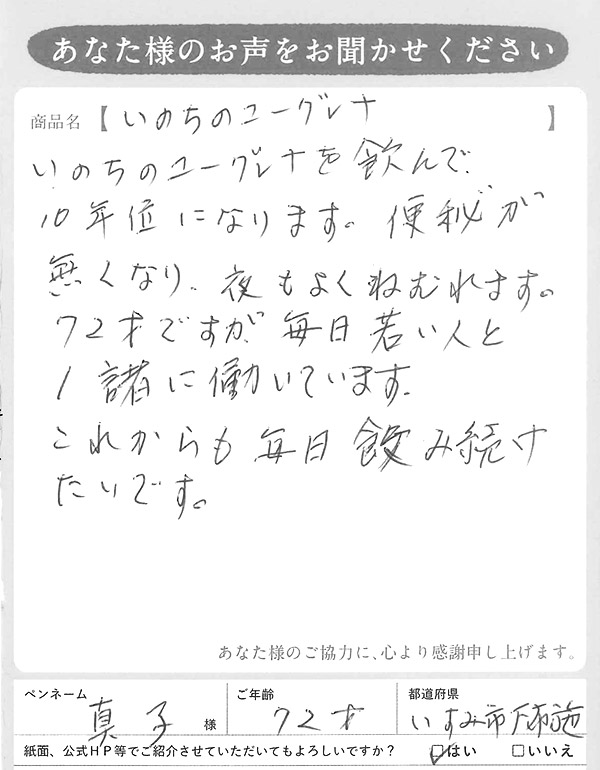 あなた様のお声をお聞かせください
商品名【いのちのユーグレナ】
いのちのユーグレナを飲んで、
10年位になります。便秘が
無くなり、夜もよくねむれます。
72才ですが、毎日若い人と
1諸に働いています。
これからも毎日飲み続け
たいです。
あなた様のご協力に、心より感謝申し上げます。
ペンネーム 真子 様 ご年齢 72才 都道府県 いすみ市
紙面、公式HP等でご紹介させていただいてもよろしいですか? ☑はい □いいえ